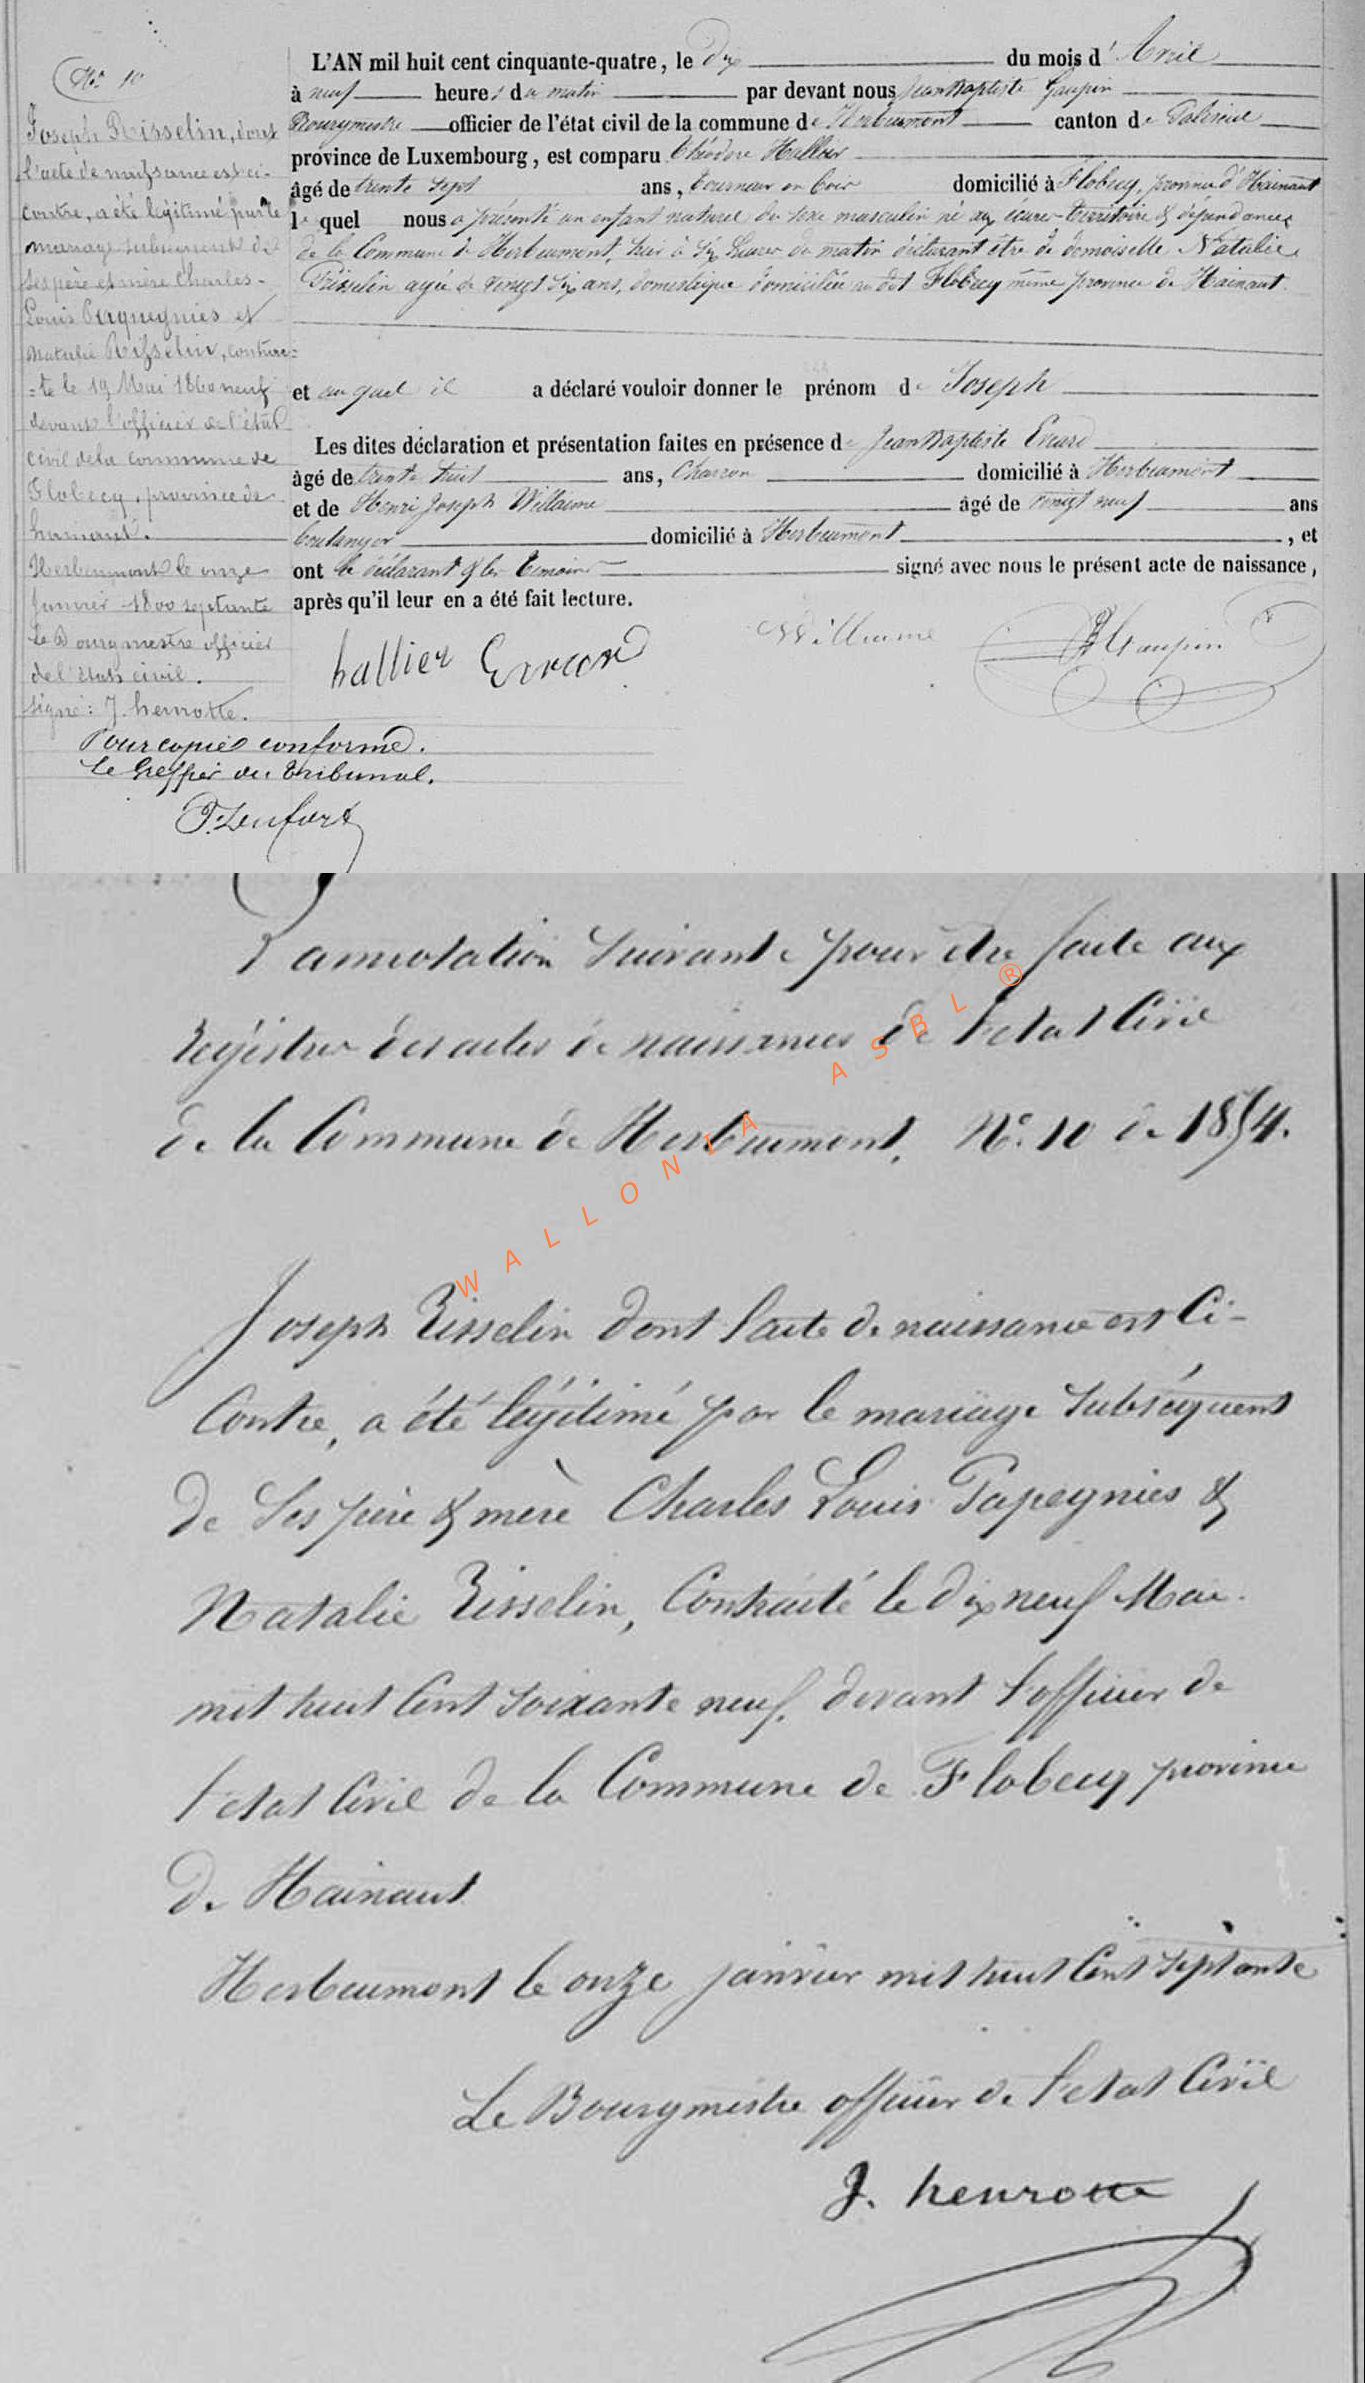 No 10
Joseph Risselin, dont
l'acte de naissance est ci-
contre, a été légitimé par le
mariage subséquent de
ses père et mère Charles-
Louis Papegnies et
Natalie Risselin, contrac-
-té le 19 Mai 1860 neuf
devant l'officier de l'état
civil de la commune de
Flobecq, province de
hainaut.
Herbeumont le onze
Janvier 1800 septante
Le Bourgmestre officier
de l'état civil.
signé : J. henrotte.
Pour copie conforme.
Le Greffier du tribunal.
L'AN mil huit cent cinquante-quatre, le dix du mois d'Avril
à neuf heures du matin par devant nous Jean Baptiste Gaupin
Bourgmestre officier de l'état civil de la commune de Herbeumont canton de Paliseul
province de Luxembourg, est comparu Théodore Hallier
âgé de trente sept ans, tourneur en bois domicilié à Flobecq, province d'Hainaut
lequel nous a présenté un enfant naturel du sexe masculin né aux écures territoire & dépendances
de la Commune de Herbeumont, hier à six heures du matin déclarant être de demoiselle Natalie
Risselin agée de vingt six ans, domestique domiciliée au dit Flobecq même province de Hainaut
et auquel il a déclaré vouloir donner le prénom de Joseph
Les dites déclaration et présentation faites en présence de Jean Baptiste Evrard
âgé de trente huit ans, Charron domicilié à Herbeumont
et de Henri Joseph Willaime âgé de vingt neuf ans
boulanger domicilié à Herbeumont, et
ont le déclarant & les témoins signé avec nous le présent acte de naissance,
après qu'il leur en a été fait lecture.
hallier Evrard Willaime Gaupin
L'annotation suivante pour être faite aux
registres des actes de naissances de l'etat Civil
de la Commune de Herbeumont. No. 10 de 1854.
Joseph Risselin dont l'acte de naissance est Ci-
Contre, a été légitimé par le mariage subséquent
de ses père & mère Charles Louis Papegnies &
Natalie Risselin, Contracté le dix neuf Mai
mil huit Cent soixante neuf, devant l'officier de
l'etat Civil de la Commune de Flobecq province
de Hainaut
Herbeumont le onze janvier mil huit Cent septante
Le Bourgmestre officier de l'etat Civil
J. henrotte
WALLONIA ASBL ®